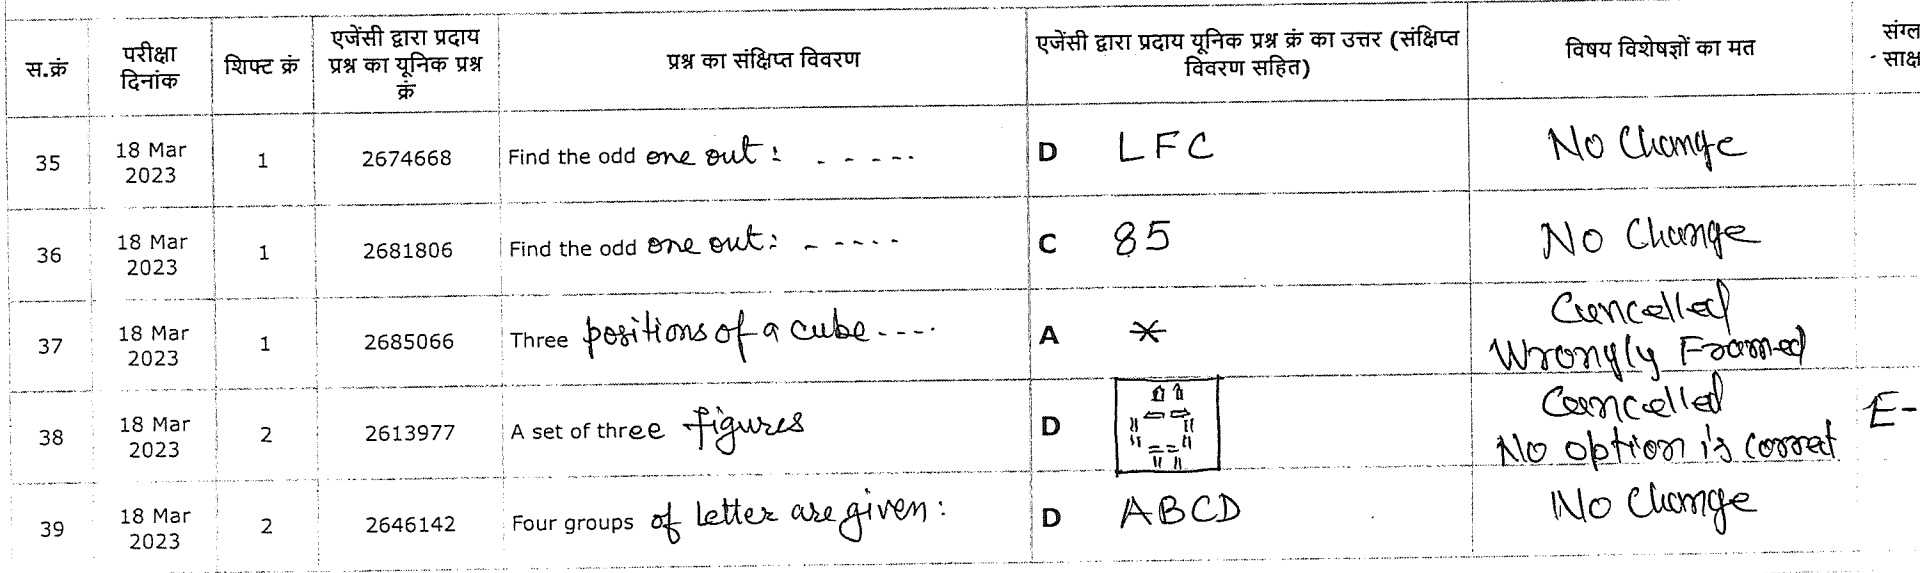 स.क्रं परीक्षा दिनांक शिफ्ट क्रं एजेंसी द्वारा प्रदाय प्रश्न का यूनिक प्रश्न क्रं प्रश्न का संक्षिप्त विवरण एजेंसी द्वारा प्रदाय यूनिक प्रश्न क्रं का उत्तर (संक्षिप्त विवरण सहित) विषय विशेषज्ञों का मत
35 18 Mar 2023 1 2674668 Find the odd one out : - - - - - D LFC No Change
36 18 Mar 2023 1 2681806 Find the odd one out : - - - - - C 85 No Change
37 18 Mar 2023 1 2685066 Three positions of a cube - - - - A * Cancelled Wrongly Framed
38 18 Mar 2023 2 2613977 A set of three figures D Cancelled No option is correct E-
39 18 Mar 2023 2 2646142 Four groups of letter are given : D ABCD No Change